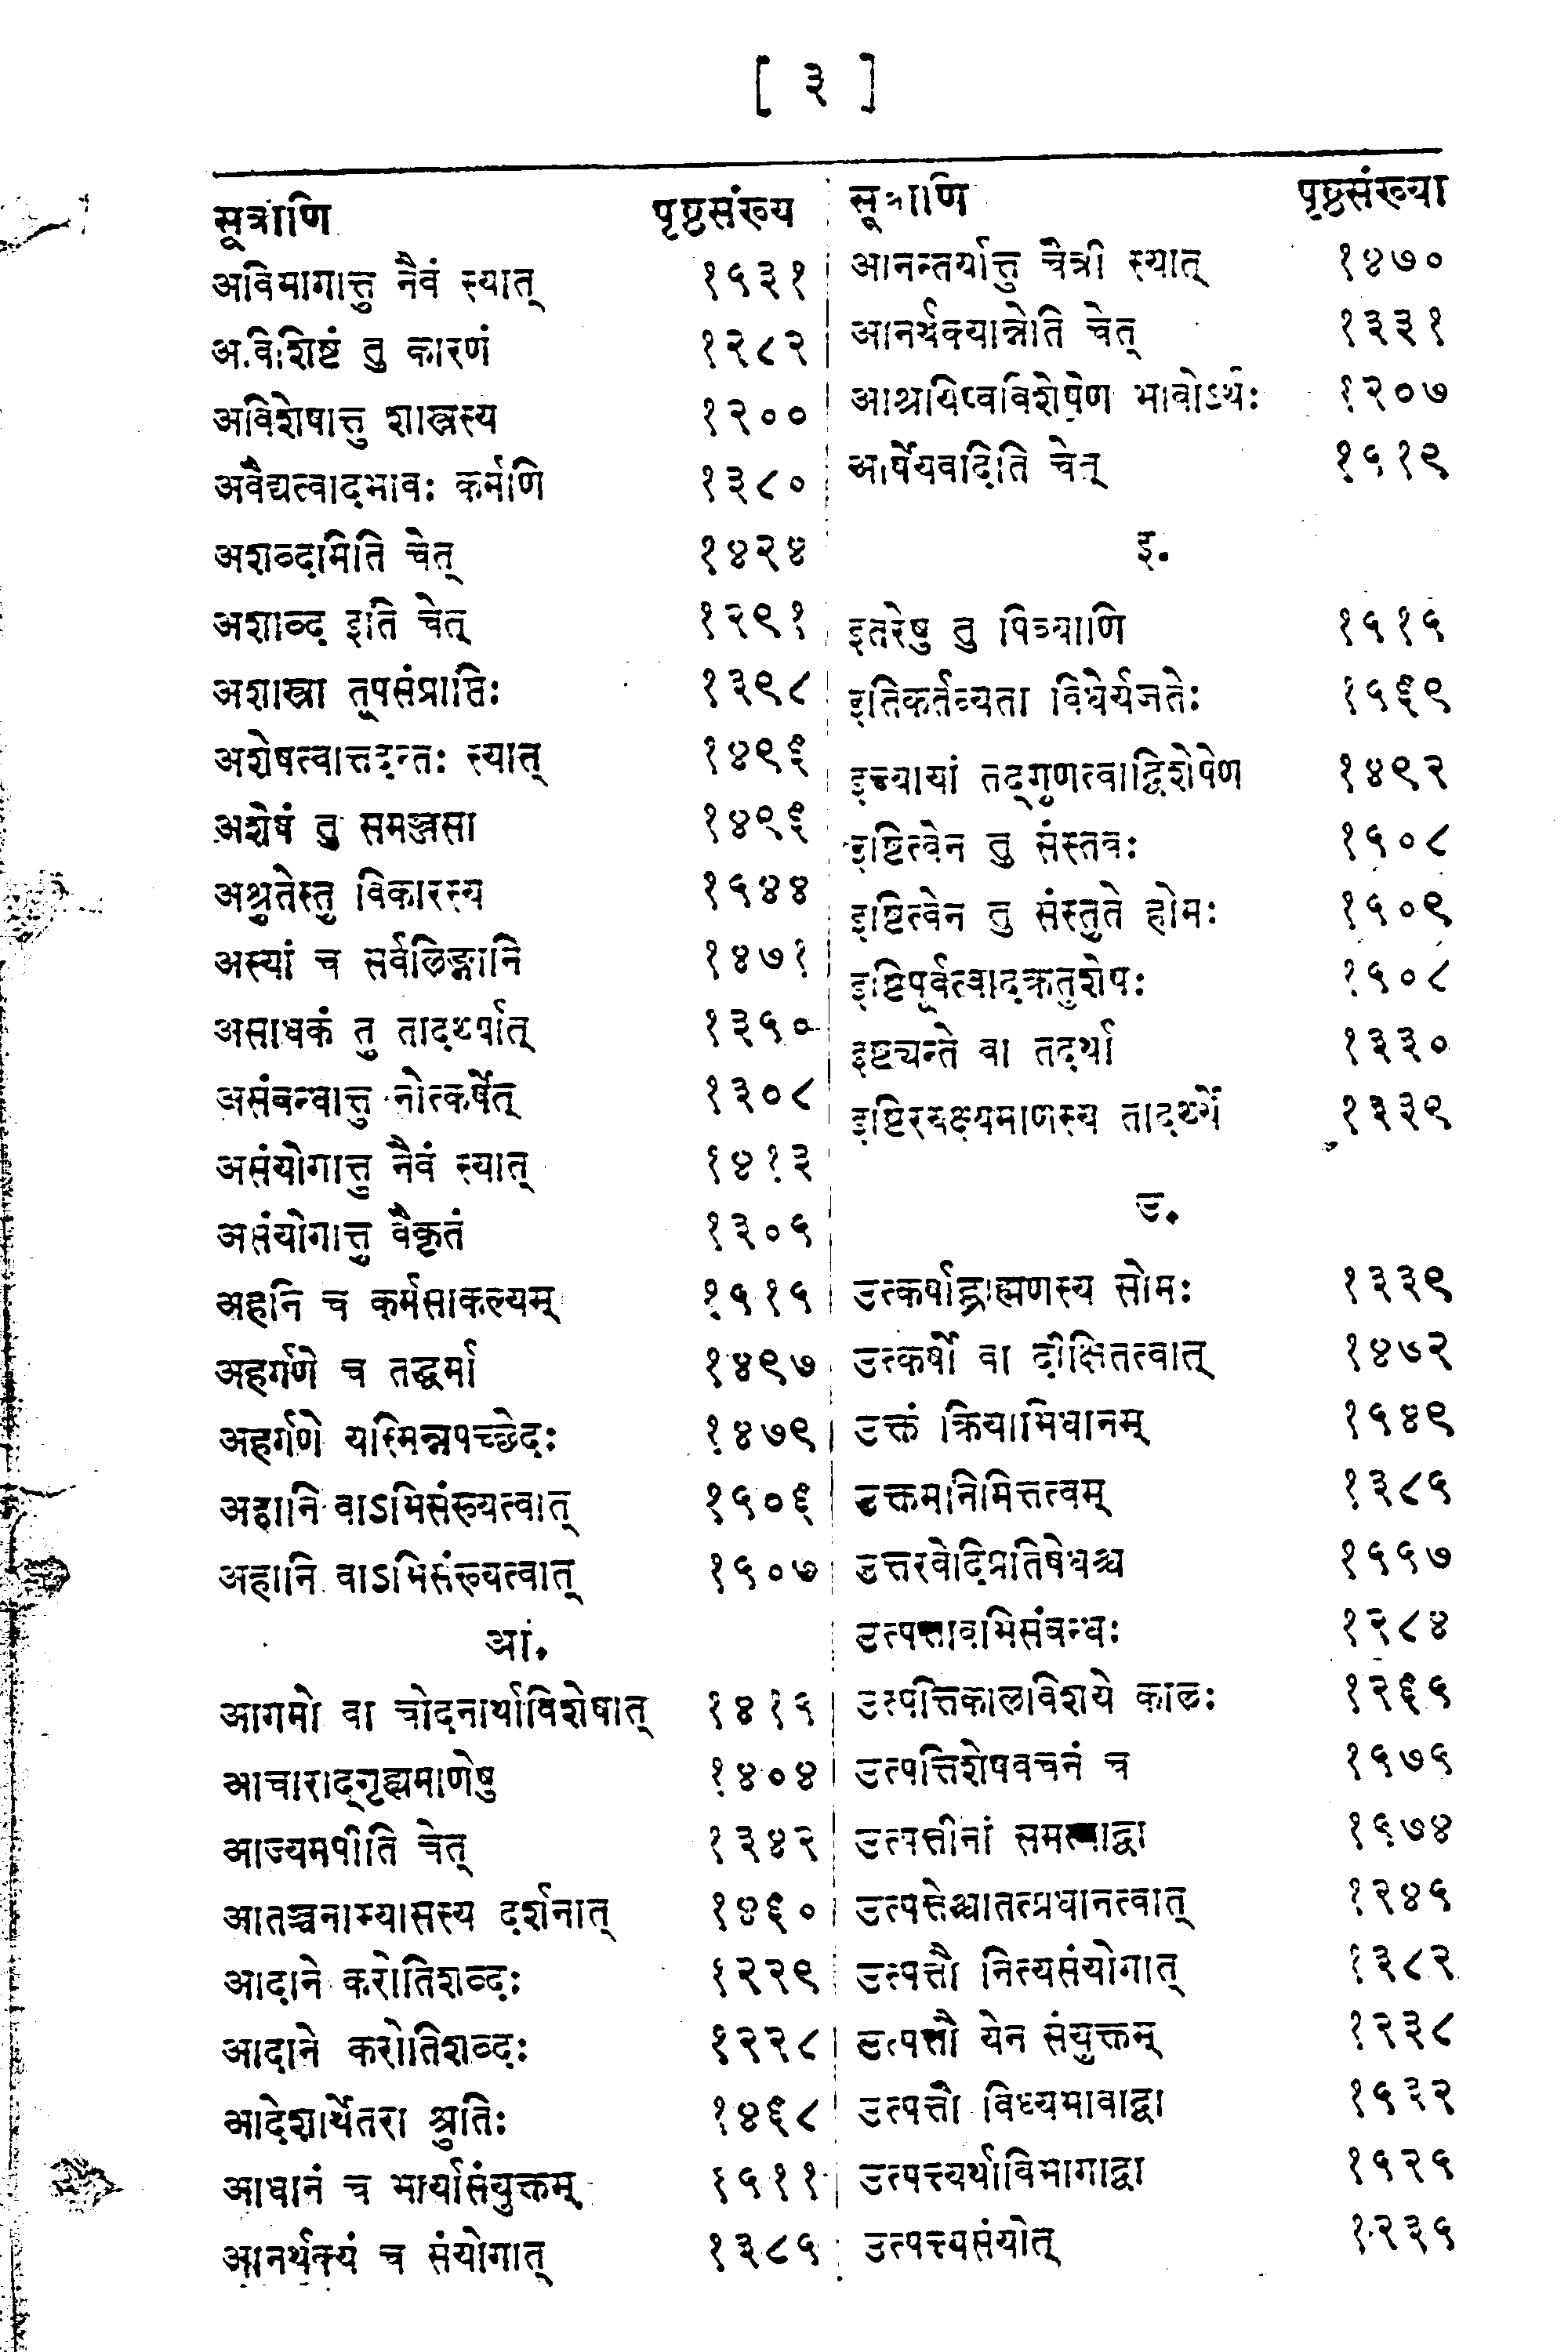 [ ३ ]
सूत्राणि पृष्ठसंख्य
अविभागात्तु नैवं स्यात् १५३१
अविशिष्टं तु कारणं १२८२
अविशेषात्तु शास्त्रस्य १२००
अवैद्यत्वादभावः कर्मणि १३८०
अशब्दमिति चेत् १४२४
अशाब्द इति चेत् १२९१
अशास्त्रा तूपसंप्राप्तिः १३९८
अशेषत्वात्तदन्तः स्यात् १४९६
अशेषं तु समञ्जसा १४९६
अश्रुतेस्तु विकारस्य १५४४
अस्यां च सर्वलिङ्गानि १४७१
असाधकं तु तादर्थ्यात् १३५०
असंबन्धात्तु नोत्कर्षेत् १३०८
असंयोगात्तु नैवं स्यात् १४१३
असंयोगात्तु वैकृतं १३०५
अहनि च कर्मसाकल्यम् १५१५
अहर्गणे च तद्धर्मा १४९७
अहर्गणे यस्मिन्नपच्छेदः १४७९
अहानि वाऽभिसंख्यत्वात् १५०६
अहानि वाऽभिसंख्यत्वात् १५०७
आ.
आगमो वा चोदनार्थाविशेषात् १४१५
आचाराद्गृह्यमाणेषु १४०४
आज्यमपीति चेत् १३४२
आतञ्चनाभ्यासस्य दर्शनात् १४६०
आदाने करोतिशब्दः १२२९
आदाने करोतिशब्दः १२२८
आदेशार्थेतरा श्रुतिः १४६८
आधानं च भार्यासंयुक्तम् १५११
आनर्थक्यं च संयोगात् १३८५
सूत्राणि पृष्ठसंख्या
आनन्तर्यात्तु चैत्री स्यात् १४७०
आनर्थक्यान्नेति चेत् १३३१
आश्रयिष्वविशेषेण भावोऽर्थः १२०७
आर्षेयवदिति चेत् १५१९
इ.
इतरेषु तु पित्र्याणि १५१५
इतिकर्तव्यता विधेर्यजतेः १५६९
इज्यायां तद्गुणत्वाद्विशेषेण १४९२
इष्टित्वेन तु संस्तवः १५०८
इष्टित्वेन तु संस्तुते होमः १५०९
इष्टिपूर्वत्वादक्रतुशेषः १५०८
इष्ट्यन्ते वा तदर्था १३३०
इष्टिरयक्ष्यमाणस्य तादर्थ्ये १३३९
उ.
उत्कर्षाद्ब्राह्मणस्य सोमः १३३९
उत्कर्षो वा दीक्षितत्वात् १४७२
उक्तं क्रियाभिधानम् १५४९
उक्तमनिमित्तत्वम् १३८५
उत्तरवेदिप्रतिषेधश्च १५५७
उत्पत्तावभिसंबन्धः १२८४
उत्पत्तिकालविशये कालः १२६५
उत्पत्तिशेषवचनं च १५७५
उत्पत्तीनां समत्वाद्वा १५७४
उत्पत्तेश्चातत्प्रधानत्वात् १२४५
उत्पत्तौ नित्यसंयोगात् १३८२
उत्पत्तौ येन संयुक्तम् १२३८
उत्पत्तौ विध्यभावाद्वा १५३२
उत्पत्त्यर्थाविभागाद्वा १५२५
उत्पत्त्यसंयोत् १२३५